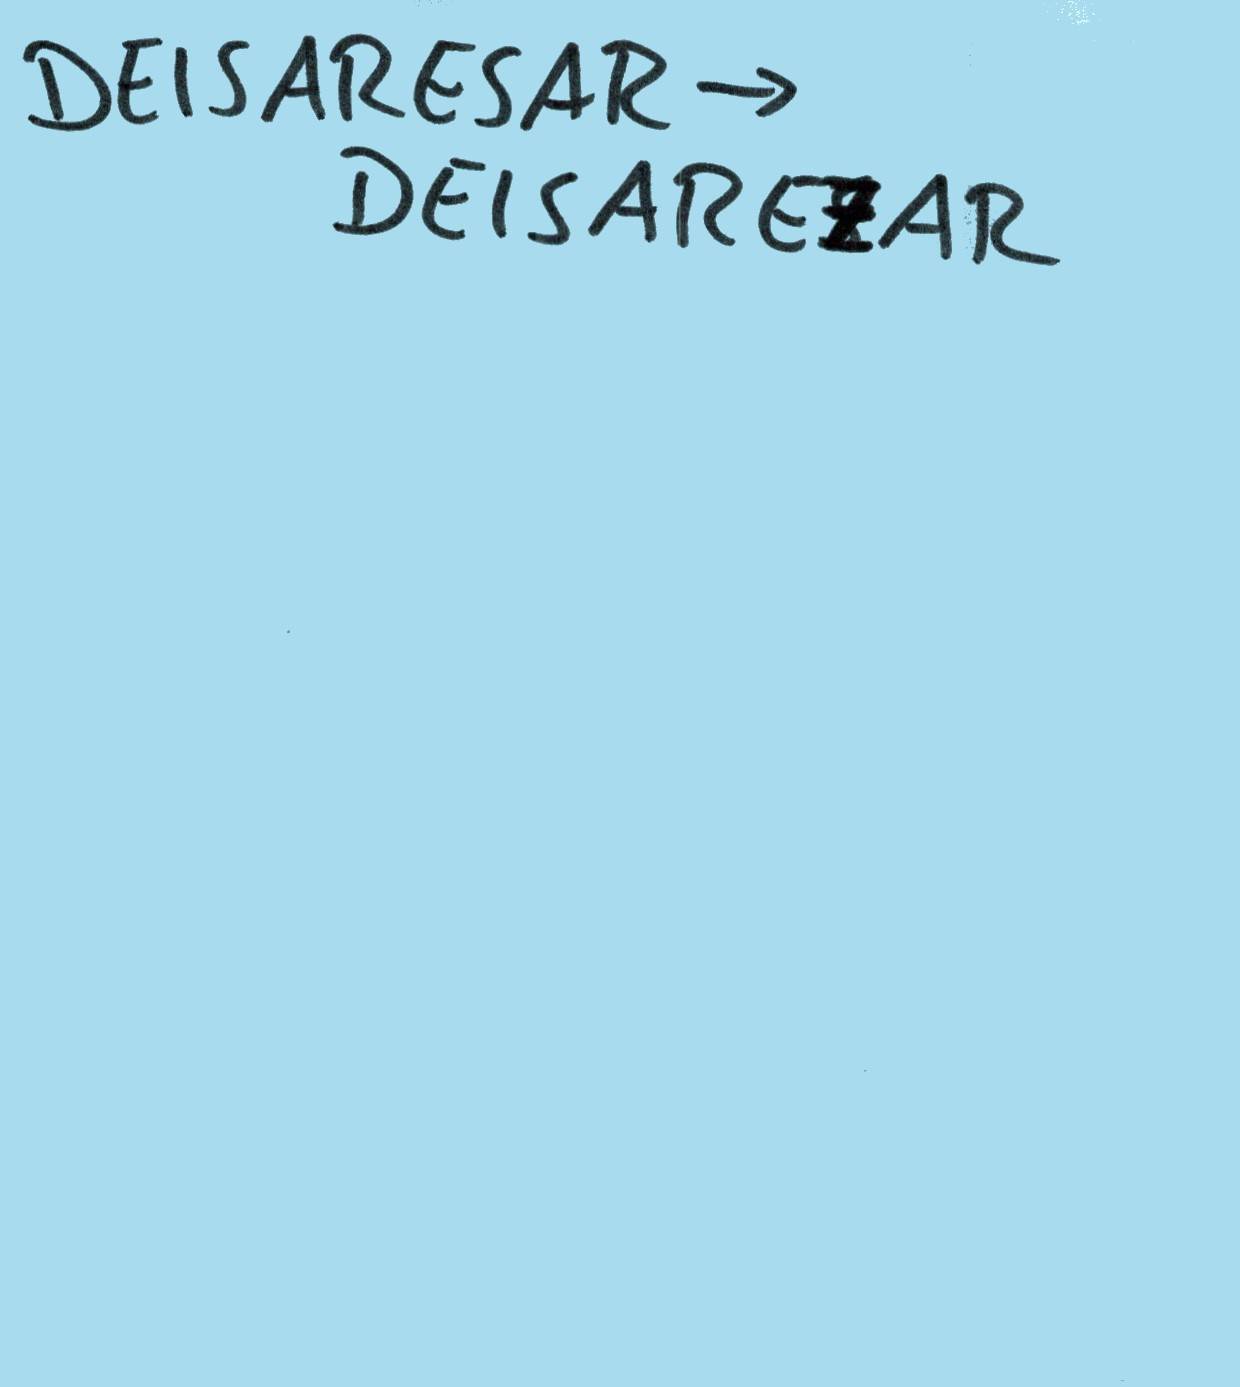 DEISARESAR →
DEISAREZAR